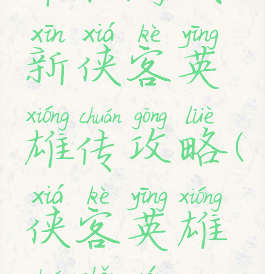 xīn xiá kè yīng
新侠客英
xióng chuán gōng lüè
雄传攻略(
xiá kè yīng xióng
侠客英雄